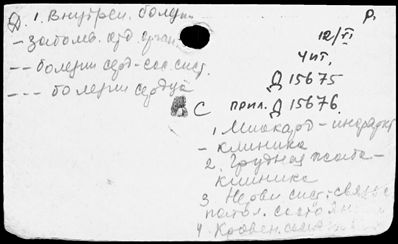 1. Внутрен. болезн.
– заболев. отд. орган
– – болезни серд.-сос. сист.
– – – болезни сердца
Р.
12/VI
Чит.
Д 15675
С прил. Д 15676.
1. Миокард – инфаркт
– клиника
2. Грудная жаба –
клиника
3. Нервн. сист. – связь с
патол. состоян
4. Кровен.